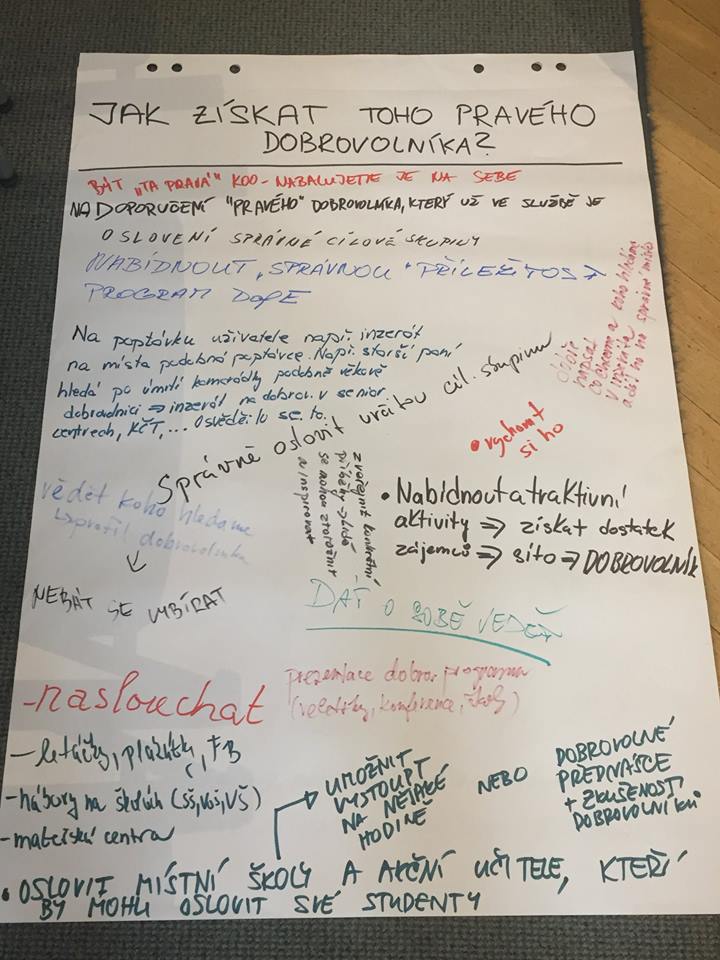 JAK ZÍSKAT TOHO PRAVÉHO
DOBROVOLNÍKA?
BÝT „TA PRAVÁ" KOO - NABALUJETE JE NA SEBE
NA DOPORUČENÍ "PRAVÉHO" DOBROVOLNÍKA, KTERÝ UŽ VE SLUŽBĚ JE
OSLOVENÍ SPRÁVNÉ CÍLOVÉ SKUPINY
NABÍDNOUT „SPRÁVNOU" PŘÍLEŽITOST
PROGRAM DOPE
Na poptávku uživatele např. inzerát
na místa podobná poptávce. Např. starší paní
hledá po úmrtí kamarádky podobně věkově
dobrovolnici ⇒ inzerát na dobrov. v senior
centrech, KČT, ... Osvědčilo se to.
dobře
napsat
co chceme a koho hledáme
v inzerátu
a dát ho na správné místo
Správně oslovit určitou cíl. skupinu
• vychovat
si ho
vědět koho hledáme
↳ profil dobrovolníka
↓
NEBÁT SE VYBÍRAT
zveřejnit konkrétní
příběhy → lidé
se mohou ztotožnit
a inspirovat
• Nabídnout atraktivní
aktivity ⇒ získat dostatek
zájemců ⇒ síto ⇒ DOBROVOLNÍK
DÁT O SOBĚ VĚDĚT
- naslouchat
prezentace dobrov. programu
(veletrhy, konference, školy)
- letáčky, plakátky, FB
- nábory na školách (SŠ, VOŠ, VŠ)
- mateřská centra
UMOŽNIT
VYSTOUPIT
NA NĚJAKÉ
HODINĚ
NEBO
DOBROVOLNÉ
PŘEDNÁŠCE
+ ZKUŠENOSTI
DOBROVOLNÍKŮ
• OSLOVIT MÍSTNÍ ŠKOLY A AKČNÍ UČITELE, KTEŘÍ
BY MOHLI OSLOVIT SVÉ STUDENTY